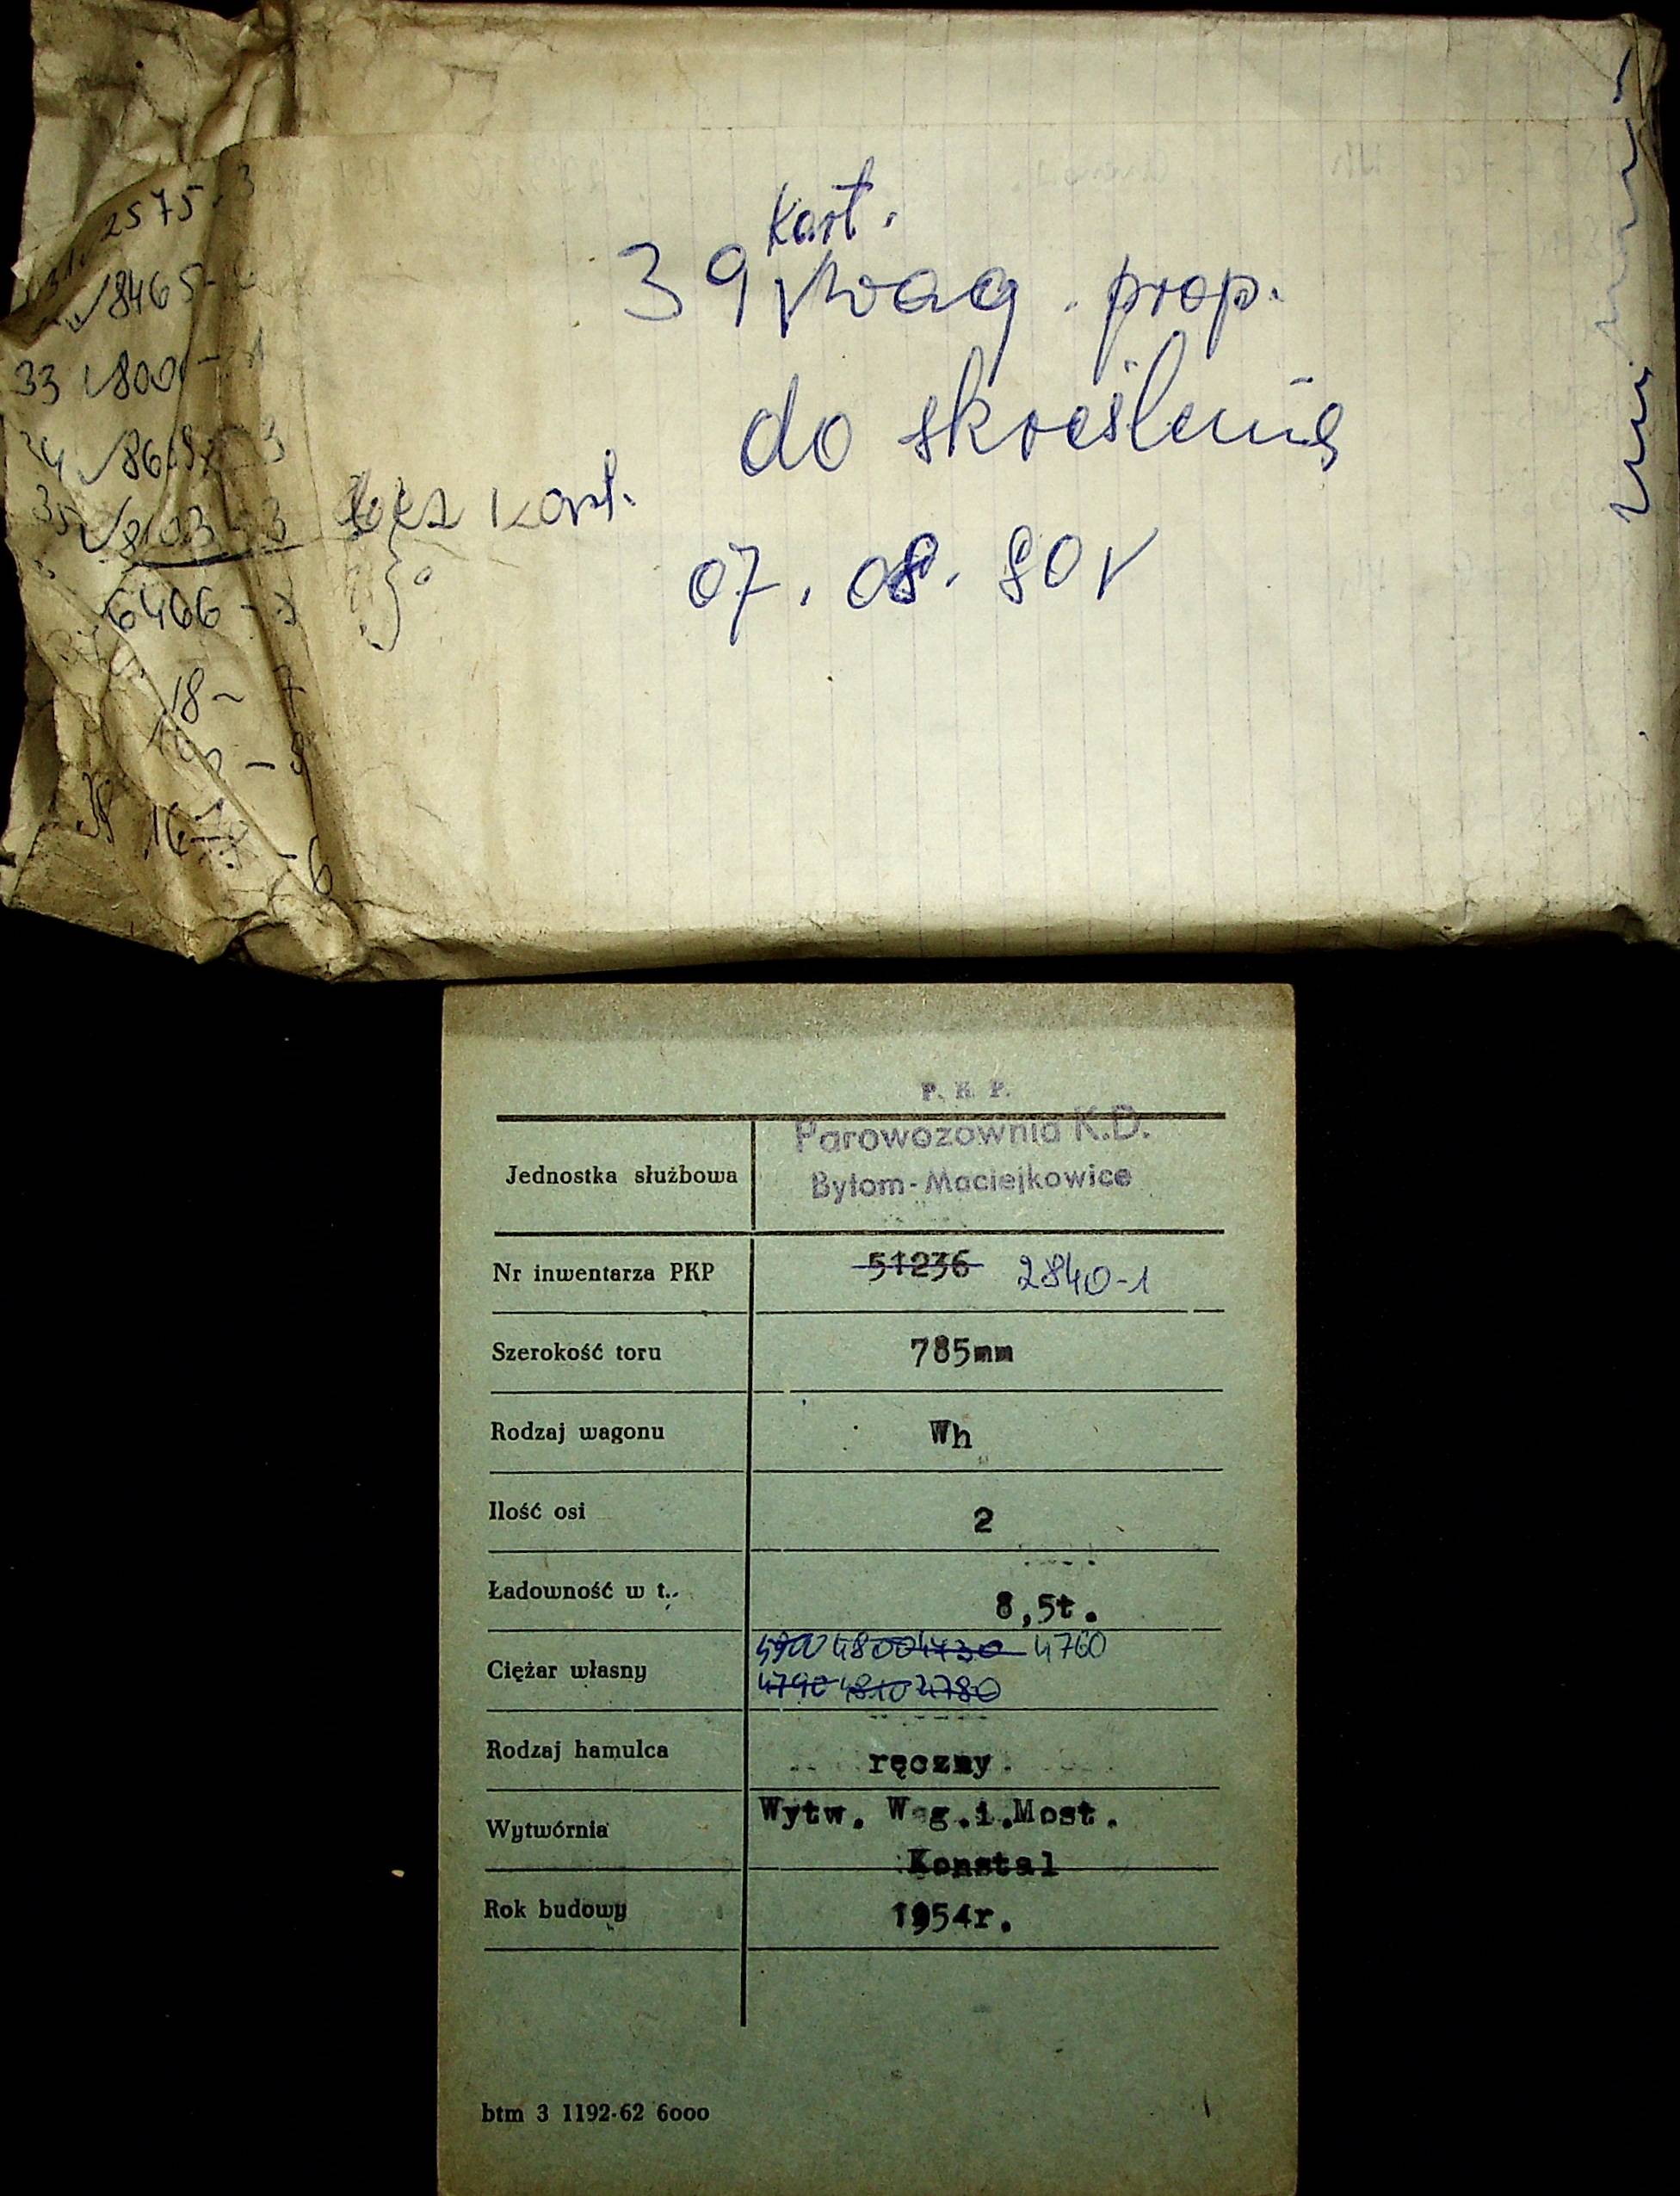 2575-3
31.
8465-
33 800
8103-3
6466-
18- 7
- 6
bez kart.
kart.
39 wag. prop.
do skreślenia
07.08.90r
P. K. P.
Parowozownia K.D.
Bytom-Maciejkowice
Jednostka służbowa
Nr inwentarza PKP 51236 2840-1
Szerokość toru 785mm
Rodzaj wagonu Wh
Ilość osi 2
Ładowność w t. 8,5t.
4800 4730 4760
Ciężar własny
4790 4810 4780
Rodzaj hamulca ręczny.
Wytw. Wag.i.Most.
Wytwórnia
Konstal
Rok budowy 1954r.
btm 3 1192-62 6000